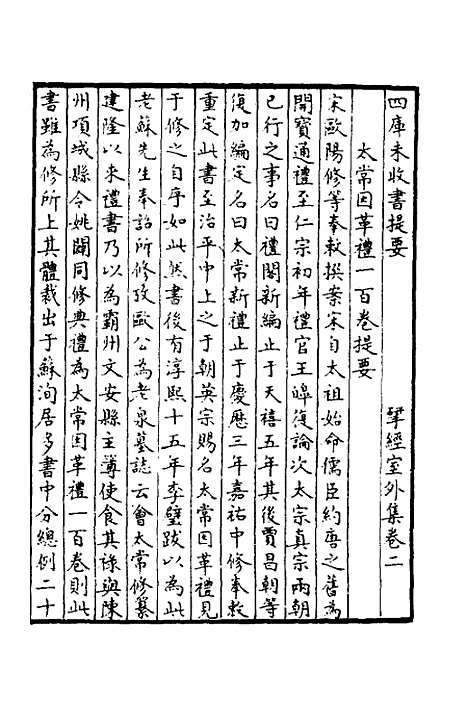 四庫未收書提要　揅經室外集卷二
太常因革禮一百卷提要
宋歐陽修等奉敕撰案宋自太祖始命儒臣約唐之舊為
開寶通禮至仁宗初年禮官王皥復論次太宗真宗兩朝
已行之事名曰禮閣新編止于天禧五年其後賈昌朝等
復加編定名曰太常新禮止于慶厯三年嘉祐中修奉敕
重定此書至治平中上之于朝英宗賜名太常因革禮見
于修之自序如此然書後有淳熙十五年李壁跋以為此
老蘇先生奉詔所修攷歐公為老泉墓誌云會太常修纂
建隆以來禮書乃以為霸州文安縣主簿使食其祿與陳
州項城縣令姚闢同修典禮為太常因革禮一百卷則此
書雖為修所上其體裁出于蘇洵居多書中分總例二十